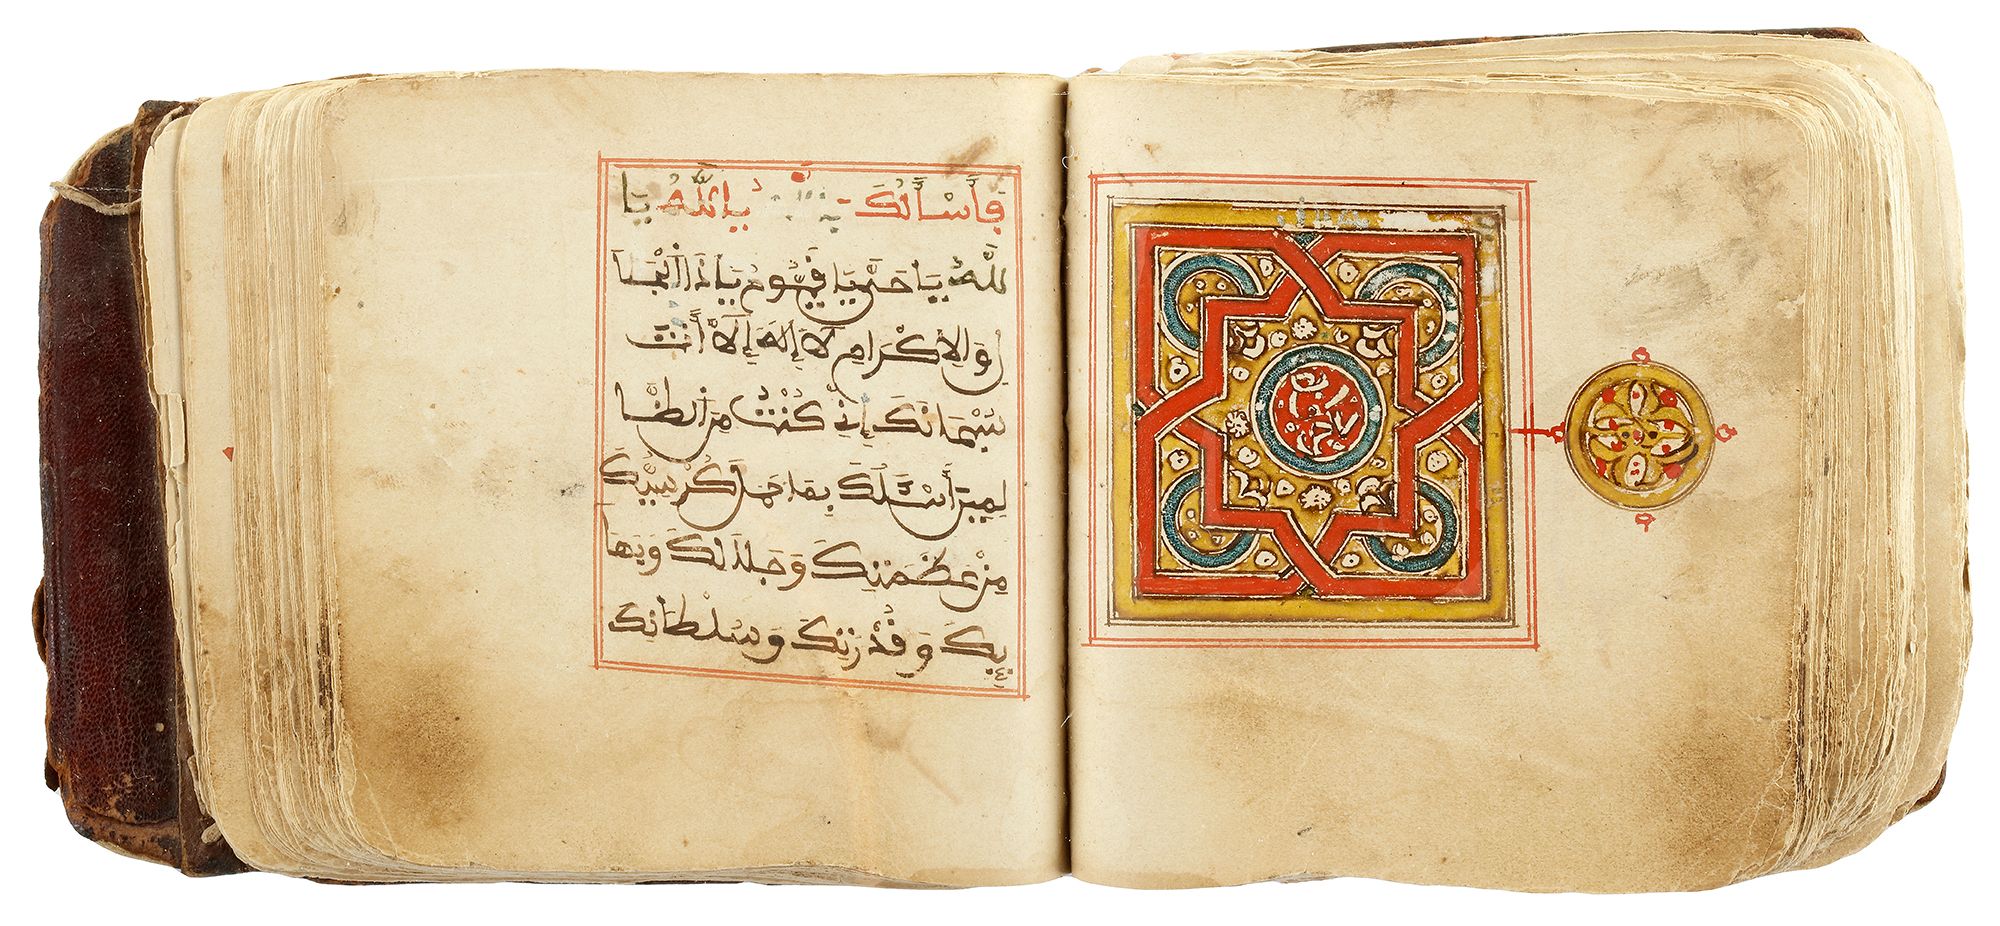 فَأَسْأَلُكَ يَاللَّهُ يَاللَّهُ يَا
للَّهُ يَا حَيُّ يَا قَيُّومُ يَا ذَا الْجَلَا
لِ وَالِاكْرَامِ لَا إِلَهَ إِلَّا أَنْتَ
سُبْحَانَكَ إِنِّي كُنْتُ مِنَ الظَّا
لِمِينَ أَسْئَلُكَ بِمَا حَمَلَ كُرْسِيُّكَ
مِنْ عَظَمَتِكَ وَجَلَالِكَ وَبَهَا
يِكَ وَقُدْرَتِكَ وَسُلْطَانِكَ